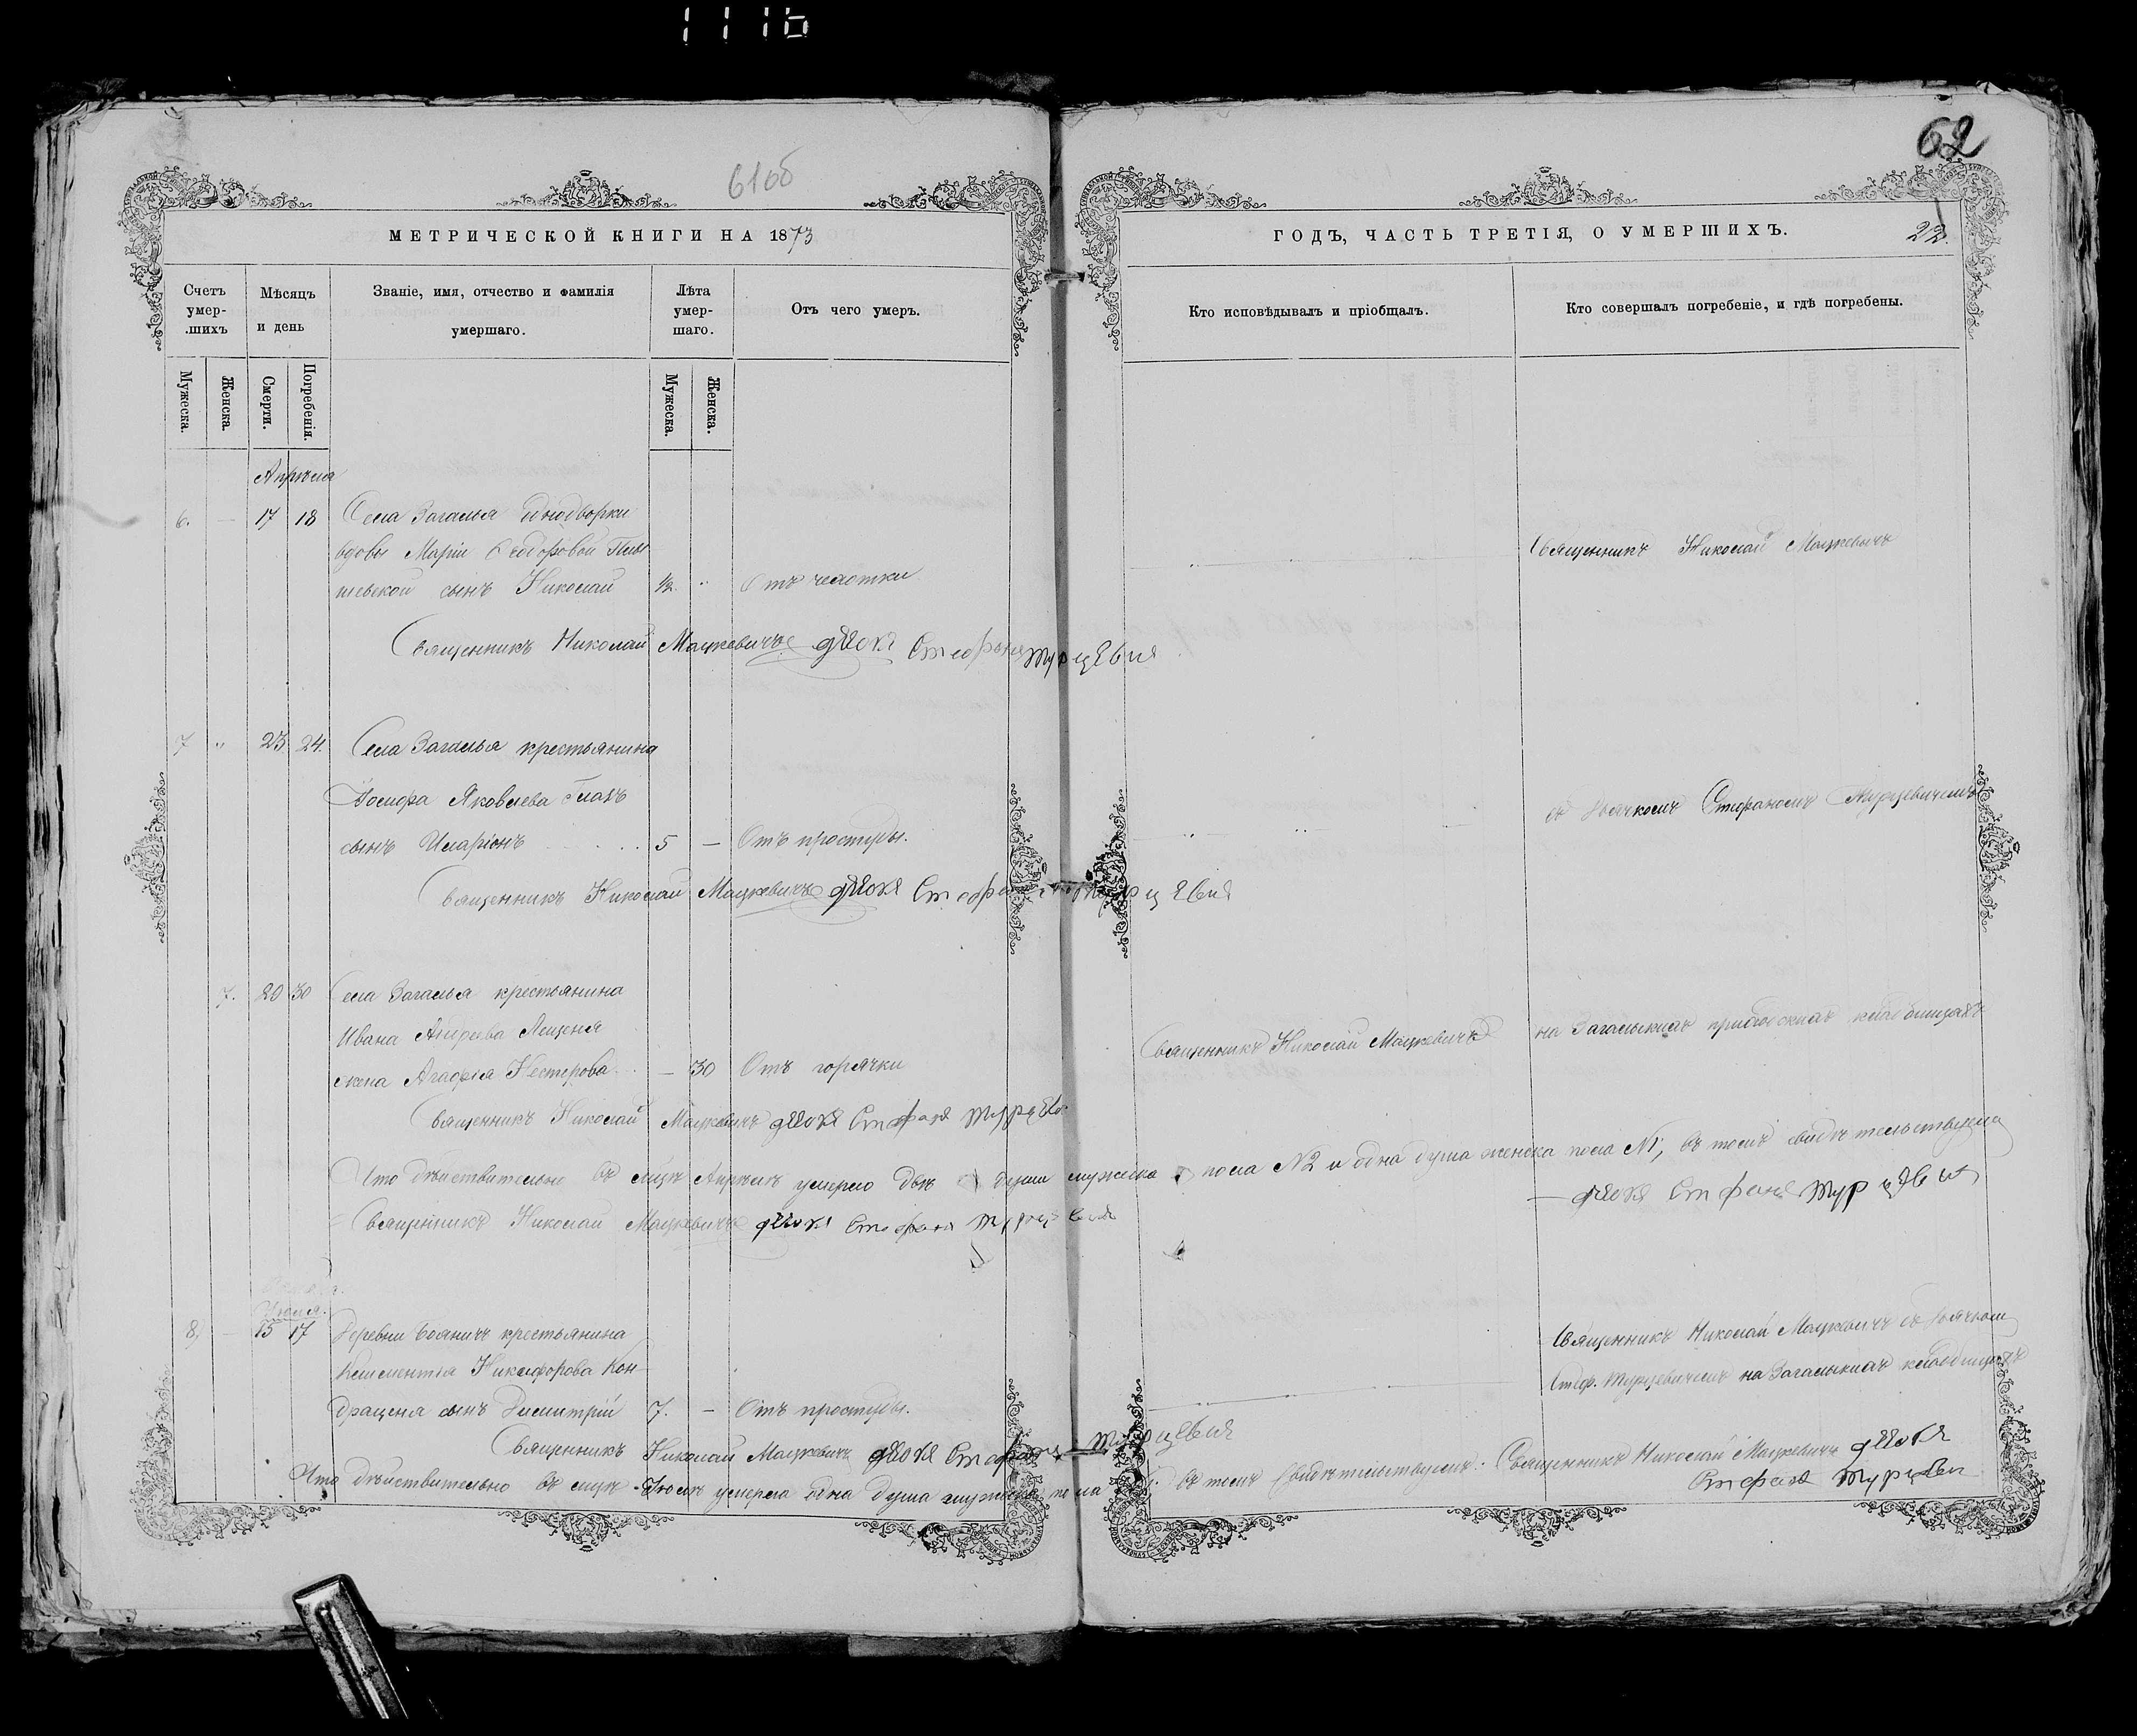 61об
62
МЕТРИЧЕСКОЙ КНИГИ НА 1873
ГОДЪ, ЧАСТЬ ТРЕТІЯ, О УМЕРШИХЪ.
22.
Счетъ умер-
.шихъ
Мѣсяцъ
и день
Званіе, имя, отчество и фамилія
умершаго.
Лѣта
умер-
шаго.
Отъ чего умеръ.
Кто исповѣдывалъ и пріобщалъ.
Кто совершалъ погребеніе, и гдѣ погребены.
Мужеска.
Женска.
Смерти.
Погребенія.
Мужеска.
Женска.
Апрѣля
6. — 17 18 Села Загалья однодворки
вдовы Маріи Ѳеодоровой
шевской сынъ Николай ½ " Отъ чесотки
Священникъ Николай Мацкевичъ
Священникъ Николай Мацкевичъ дяокъ Стефанъ Турцевич
7 " 23 24. Села Загалья крестьянина
Іосифа Яковлева
сынъ Иларіонъ 5 — Отъ простуды.
съ дьячкомъ Стефаномъ Турцевичемъ
Священникъ Николай Мацкевичъ дяокъ Стефанъ Турцевич
7. 20 30 Села Загалья крестьянина
Ивана Андреева Ященя
жена Агафія Нестерова — 30 Отъ горячки
Священникъ Николай Мацкевичъ
на Загальскихъ приходскихъ кладбищахъ
Священникъ Николай Мацкевичъ дяокъ Стефанъ Турцев
Что дѣйствительно въ мцѣ Апрѣлѣ умерло двѣ души мужеска пола №2 и одна душа женска пола №1, въ томъ свидѣтельствуемъ
Священникъ Николай Мацкевичъ дяокъ Стефанъ Турцевич
— дяокъ Стефанъ Турцевич
Іюля.
8. — 15 17 Деревни Бояничъ крестьянина
Климентія Никифорова Кон-
драценя сынъ Димитрій 7. — Отъ простуды.
Священникъ Николай Мацкевичъ съ дьячком
Стеф. Турцевичемъ на Загальскихъ кладбищахъ
Священникъ Николай Мацкевичъ дяокъ Стефанъ Турцевич
Что дѣйствительно въ мцѣ Іюлѣ умерла одна душа мужеска пола въ томъ свидѣтельствуемъ: Священникъ Николай Мацкевичъ дяокъ
Стефанъ Турцевич